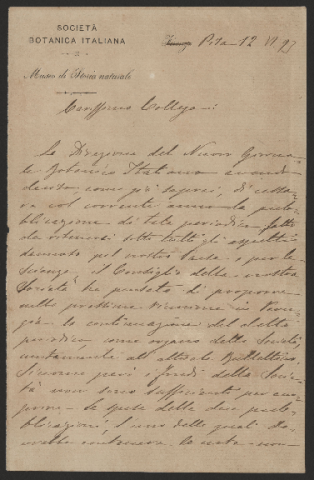 SOCIETÀ
BOTANICA ITALIANA
Museo di Storia naturale
Firenze Pisa - 12 VI 93
Carissimo Collega -
La Direzione del Nuovo Giorna-
le Botanico Italiano avendo
deciso, come già saprai, di cessa-
re col corrente anno la pub-
blicazione di tale periodico, fatto
da ritenersi sotto tutti gli aspetti
dannoso pel nostro Paese e per la
Scienza, il Consiglio della nostra
Società ha pensato di proporre
nella prossima riunione in
la continuazione del detto
periodico come organo della Società
unitamente all'attuale Bullettino.
Siccome però i fondi della Socie-
tà non sono sufficienti per
le spese delle due pub-
blicazioni, l'una delle quali do-
vrebbe conservare la